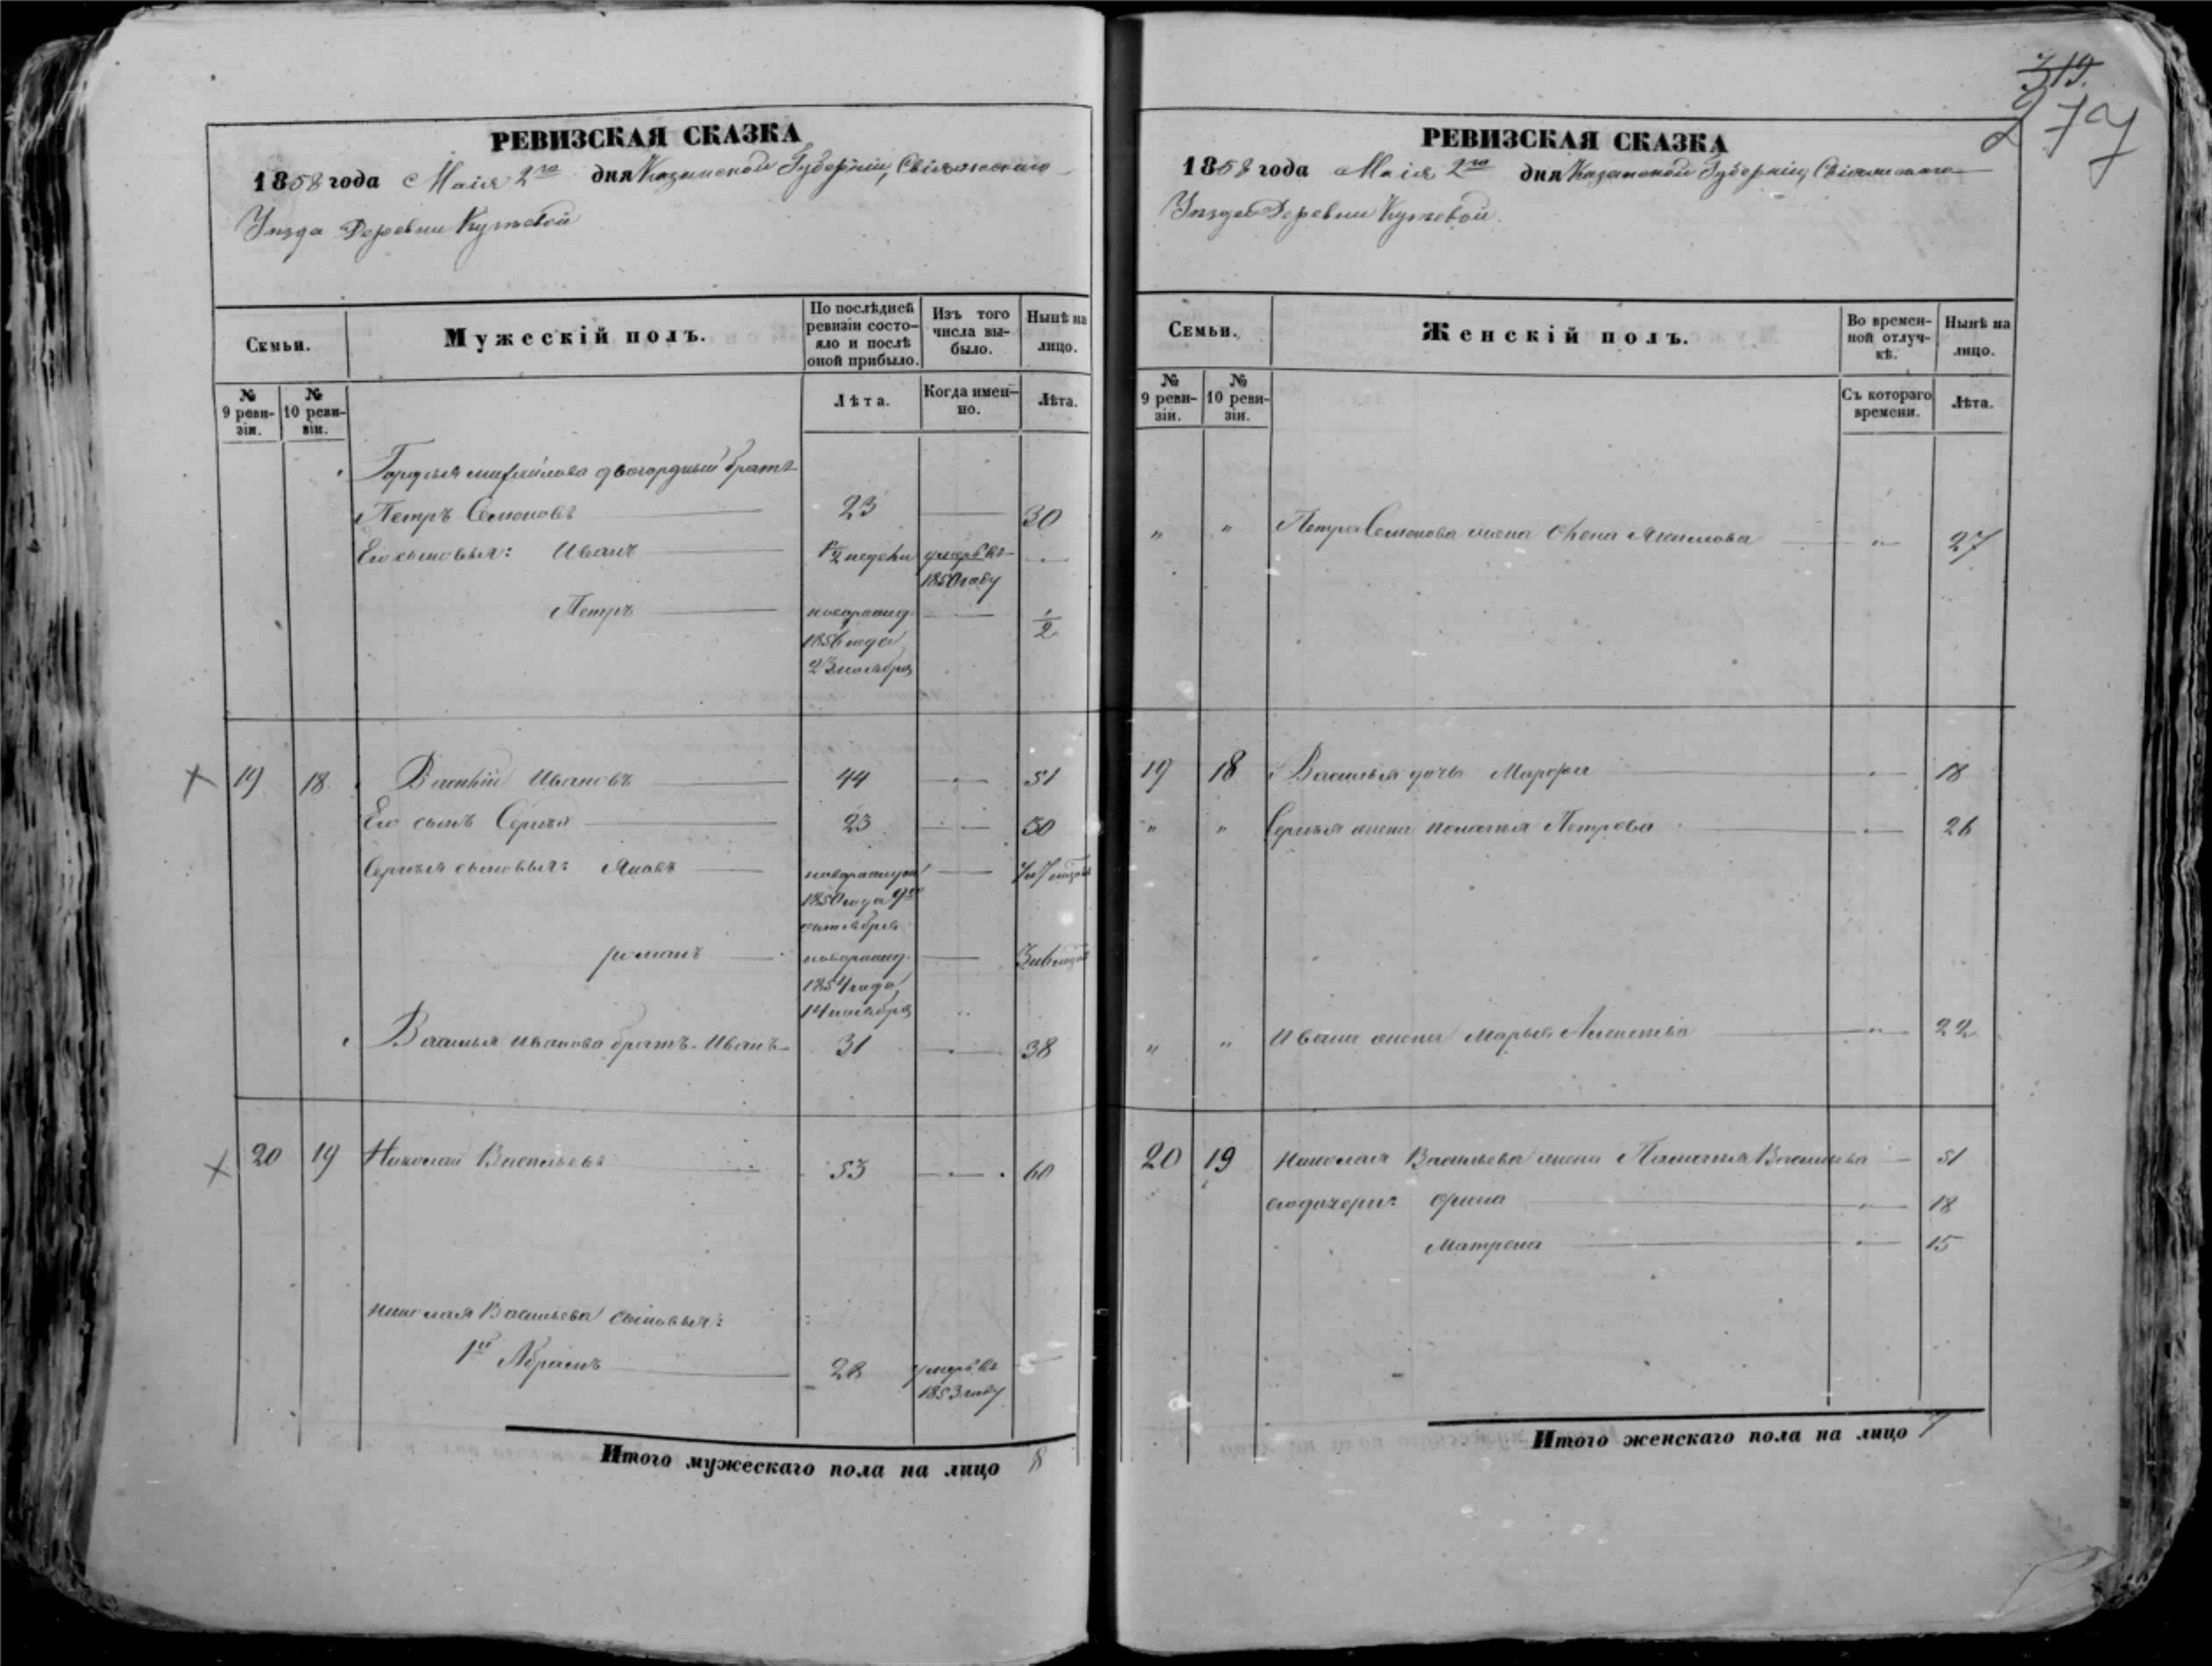 319.
279
РЕВИЗСКАЯ СКАЗКА
1858 года Маія 2го дня Казанской Губерніи, Свіяжскаго
Уѣзда Деревни Кутьевой
Семьи.
Мужескій полъ.
По послѣдней ревизіи состояло и послѣ оной прибыло.
Изъ того числа выбыло.
Нынѣ на лицо.
№ 9 ревизіи.
№ 10 ревизіи.
Лѣта.
Когда именно.
Лѣта.
михайлова двоюродный братъ
Петръ Семеновъ 23 30
Его сыновья: Иванъ 1/2 недели умеръ въ
1850 году
Петръ новорожд. 1/2
1856 года
23 ноября
19 18 Василій Ивановъ 44 51
Его сынъ Сергѣй 23 30
Сергѣя сыновья: Яковъ новорожден 7 и 7 мѣсяц
1850 года 9го
октября
романъ новорожд. 3 и 6 мѣсяц
1854 года
14 ноября
Василья Иванова братъ Иванъ 31 38
20 19 Николай Васильевъ 53 60
Николая Васильева сыновья:
1й Абрамъ 28 умеръ въ
1853 году
Итого мужескаго пола на лицо 8
РЕВИЗСКАЯ СКАЗКА
1858 года Маія 2го дня Казанской Губерніи, Свіяжскаго
Уѣзда Деревни Кутьевой.
Семьи.
Женскій полъ.
Во временной отлучкѣ.
Нынѣ на лицо.
№ 9 ревизіи.
№ 10 ревизіи.
Съ котораго времени.
Лѣта.
" " Петра Семенова жена Акимова " 27
19 18 Василья дочь Марфа " 18
" " Сергѣя жена Петрова " 26
" " Ивана жена Марья " 22
20 19 Николая Васильева жена Васильева 51
его дочери: Орина " 18
Матрена " 15
Итого женскаго пола на лицо 7